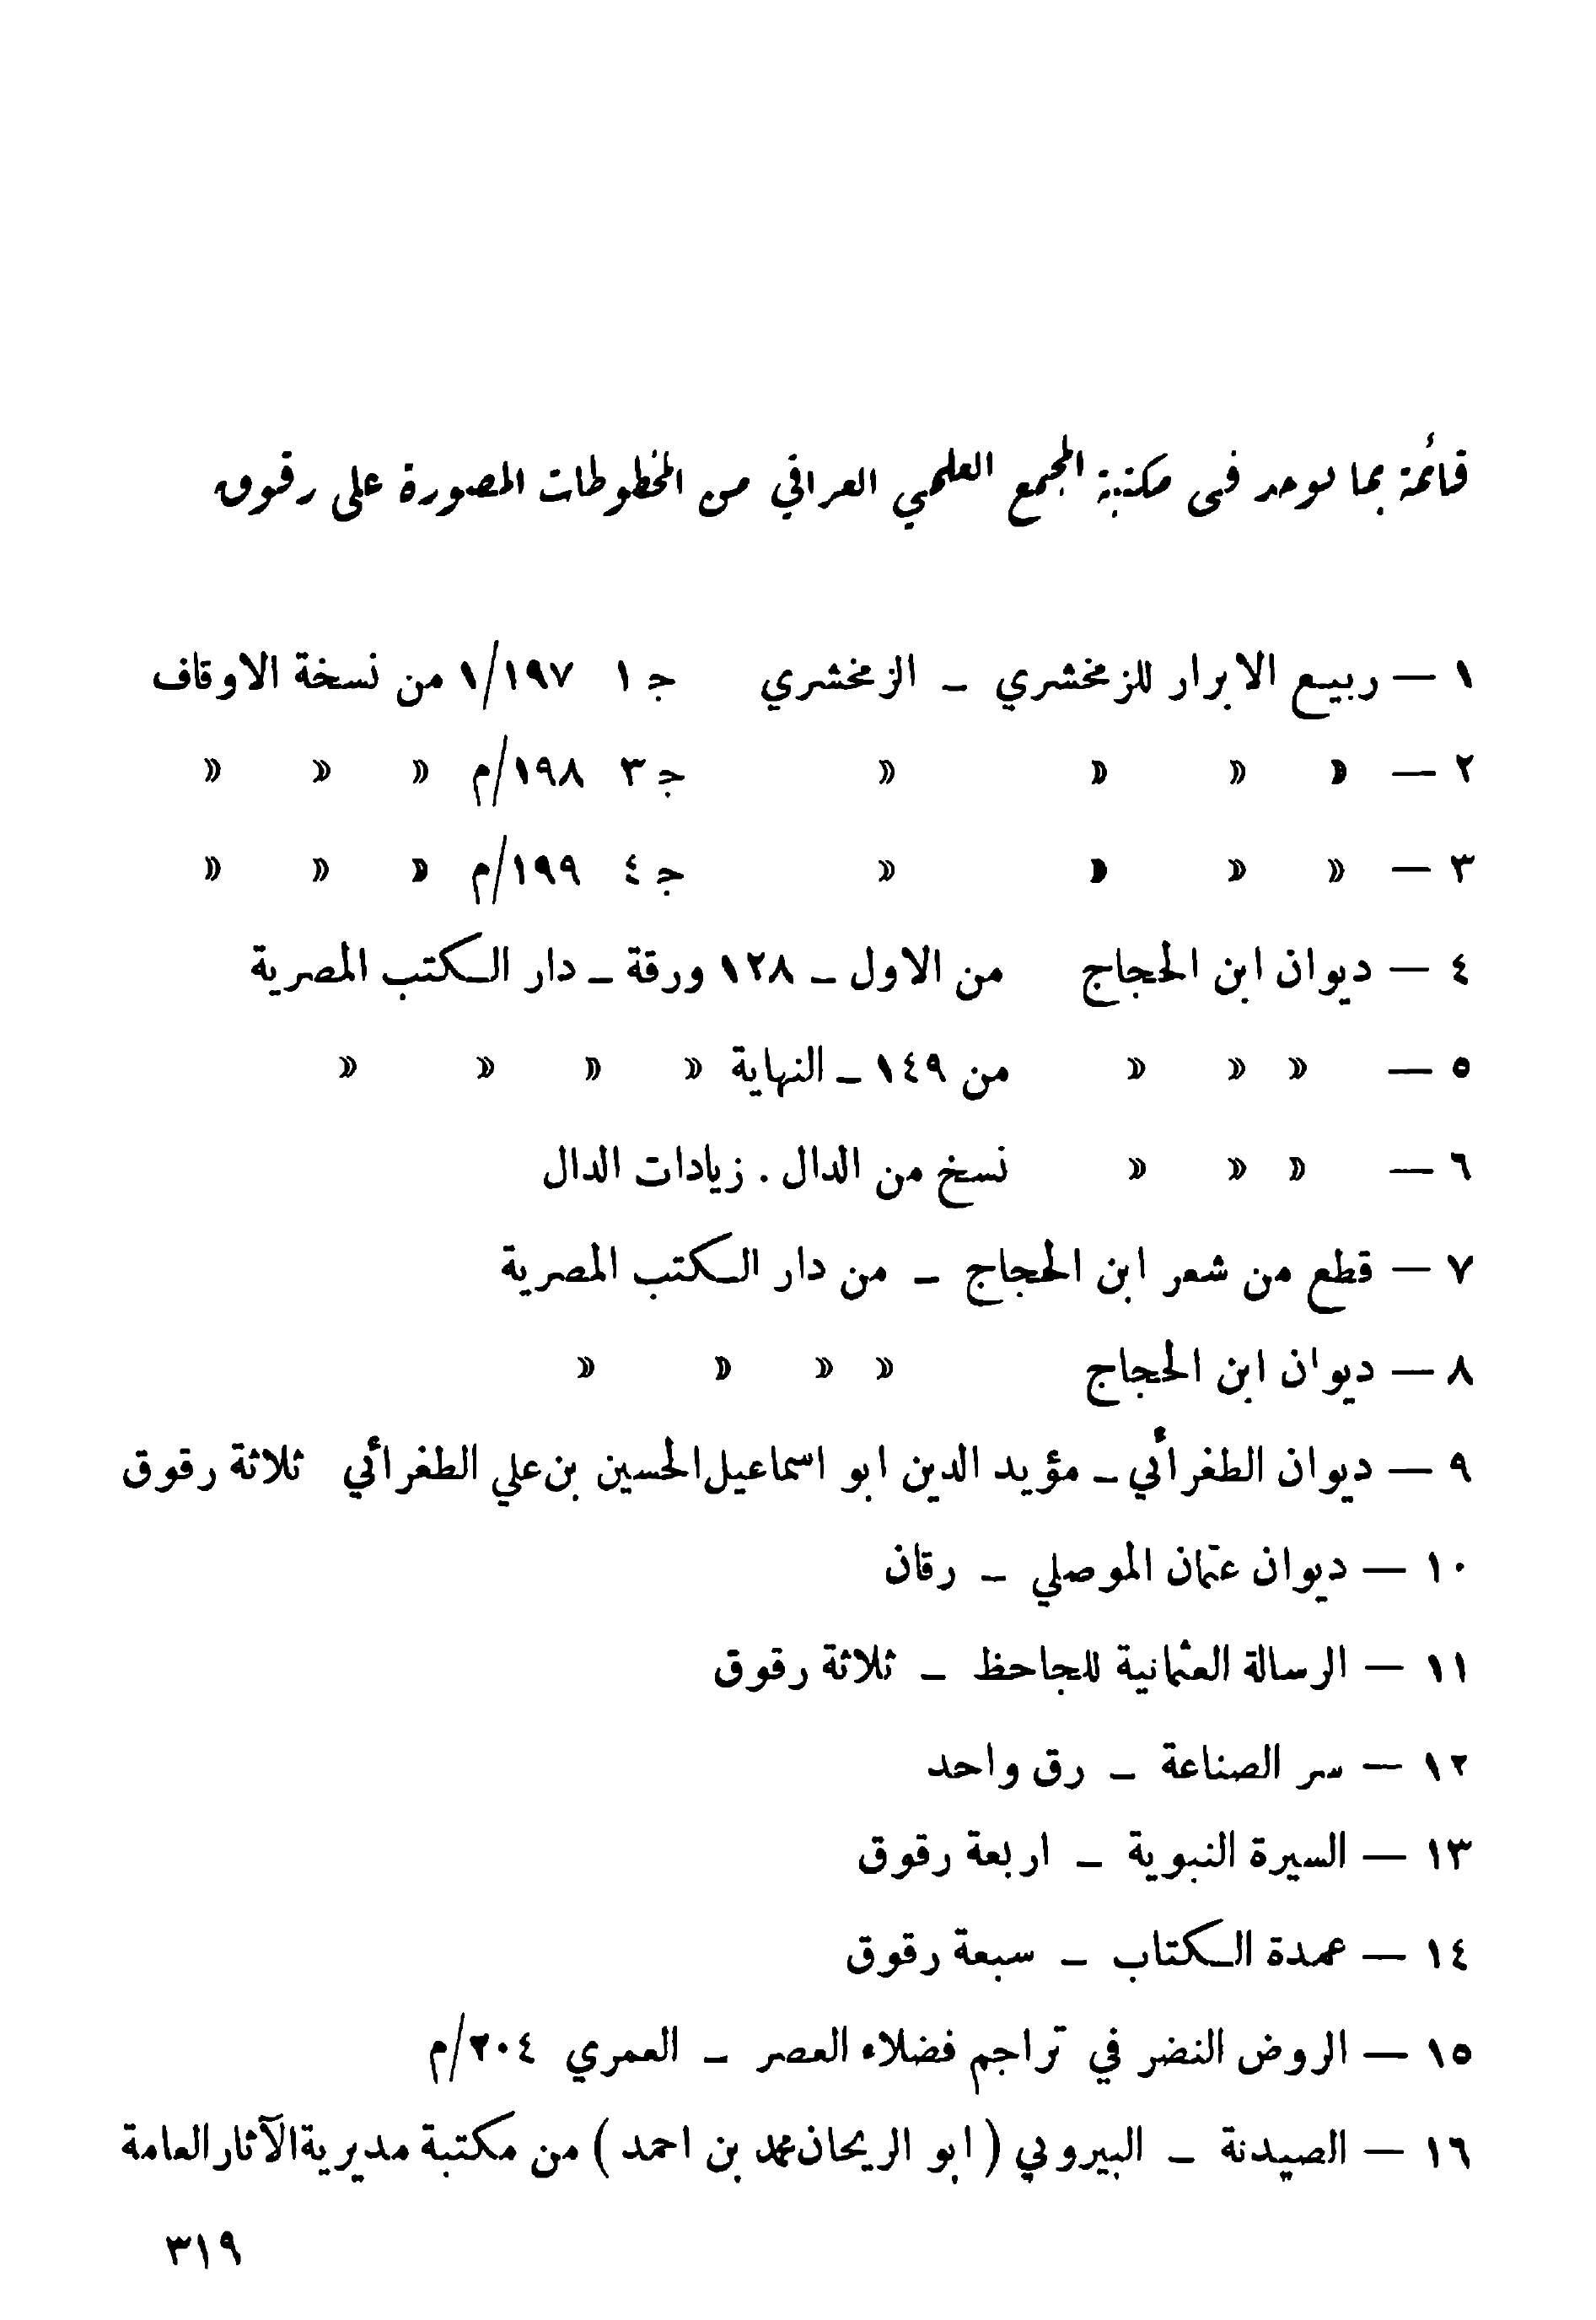 قائمة بما يوجد في مكتبة المجمع العلمي العراقي من المخطوطات المصورة على رقوق
١ — ربيع الابرار للزمخشري – الزمخشري ج ١ ١/١٩٧ من نسخة الاوقاف
٢ — » » » » ج ٣ ١٩٨/م » » »
٣ — » » » » ج ٤ ١٩٩/م » » »
٤ — ديوان ابن الحجاج من الاول – ١٢٨ ورقة – دار الكتب المصرية
٥ — » » » من ١٤٩ – النهاية » » » »
٦ — » » » نسخ من الدال . زيادات الدال
٧ — قطع من شعر ابن الحجاج – من دار الكتب المصرية
٨ — ديوان ابن الحجاج » » » »
٩ — ديوان الطغرائي – مؤيد الدين ابو اسماعيل الحسين بن علي الطغرائي ثلاثة رقوق
١٠ — ديوان عثمان الموصلي – رقان
١١ — الرسالة العثمانية للجاحظ – ثلاثة رقوق
١٢ — سر الصناعة – رق واحد
١٣ — السيرة النبوية – اربعة رقوق
١٤ — عمدة الكتاب – سبعة رقوق
١٥ — الروض النضر في تراجم فضلاء العصر – العمري ٢٠٤/م
١٦ — الصيدنة – البيروني ( ابو الريحان محمد بن احمد ) من مكتبة مديرية الآثار العامة
٣١٩